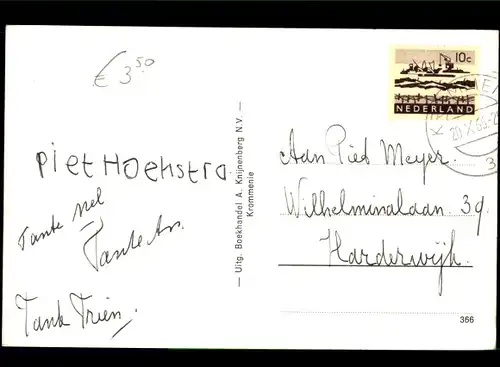 € 3.50
Piet Hoekstra
Tante Nel
Tante An.
Tante Trien.
— Uitg. Boekhandel A. Knijnenberg N.V. —
Krommenie
10c
NEDERLAND
20.X.66
3
Aan Piet Meyer.
Wilhelminalaan 39
Harderwijk.
366